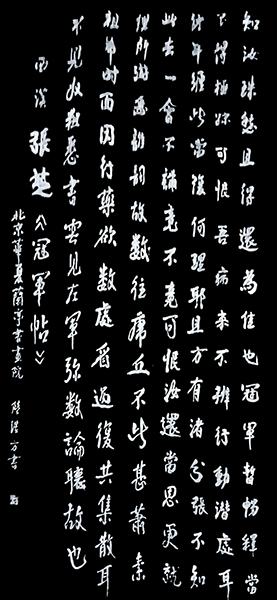 知汝殊愁且得還為佳也冠軍暫暢釋當
不得極踪可恨吾病來不辨行動潛處耳
終年纏此當復何理耶且方有諸分張不知
此去一會不講竟不竟可恨汝還當思更就
理所游悉誰同故數往虎丘不此甚蕭索
祖希時面因行藥欲數處看過復共集散耳
不見奴粗悉書雲見左軍弥數論聽故也
張芝《冠軍帖》
北京華夏蘭亭書畫院